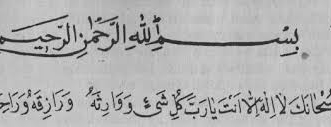 بِسْمِ اللهِ الرَّحْمٰنِ الرَّحِيمِ
سُبْحَانَكَ لَا اِلٰهَ اِلَّا اَنْتَ يَا رَبَّ كُلِّ شَیْءٍ وَ وَارِثَهُ وَ رَازِقَهُ وَ